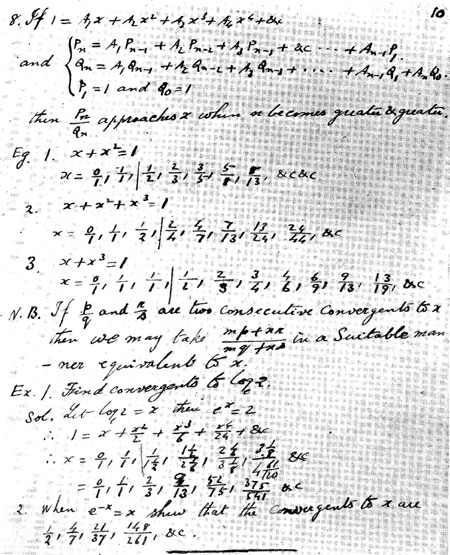 10
8. If 1 = A₁x + A₂x² + A₃x³ + A₄x⁴ + &c
Pₙ = A₁Pₙ₋₁ + A₂Pₙ₋₂ + A₃Pₙ₋₃ + &c ··· + Aₙ₋₁P₁.
and { Qₙ = A₁Qₙ₋₁ + A₂Qₙ₋₂ + A₃Qₙ₋₃ + ···· + Aₙ₋₁Q₁ + AₙQ₀.
P₁ = 1 and Q₀ = 1
then Pₙ/Qₙ approaches x when n becomes greater & greater.
Eg. 1. x + x² = 1
x = 0/1, 1/1, | 1/2, 2/3, 3/5, 5/8, 8/13, &c &c
2. x + x² + x³ = 1
x = 0/1, 1/1, 1/2, | 2/4, 4/7, 7/13, 13/24, 24/44, &c
3. x + x³ = 1
x = 0/1, 1/1, 1/1, | 1/2, 2/3, 3/4, 4/6, 6/9, 9/13, 13/19, &c
N.B. If p/q and r/s are two consecutive Convergents to x
then we may take (mp + nr)/(mq + ns) in a Suitable man
- ner equivalents to x.
Ex. 1. Find convergents to logₑ2.
Sol. Let log 2 = x then eˣ = 2
∴ 1 = x + x²/2 + x³/6 + x⁴/24 + &c
∴ x = 0/1, 1/1, | 1/1½, 1½/2⅙, 2⅙/3⅛, 3⅛/4 61/120 &c
= 0/1, 1/1, 2/3, 9/13, 52/75, 375/541 &c
2. When e⁻ˣ = x shew that the convergents to x are
1/2, 4/7, 21/37, 148/261, &c.